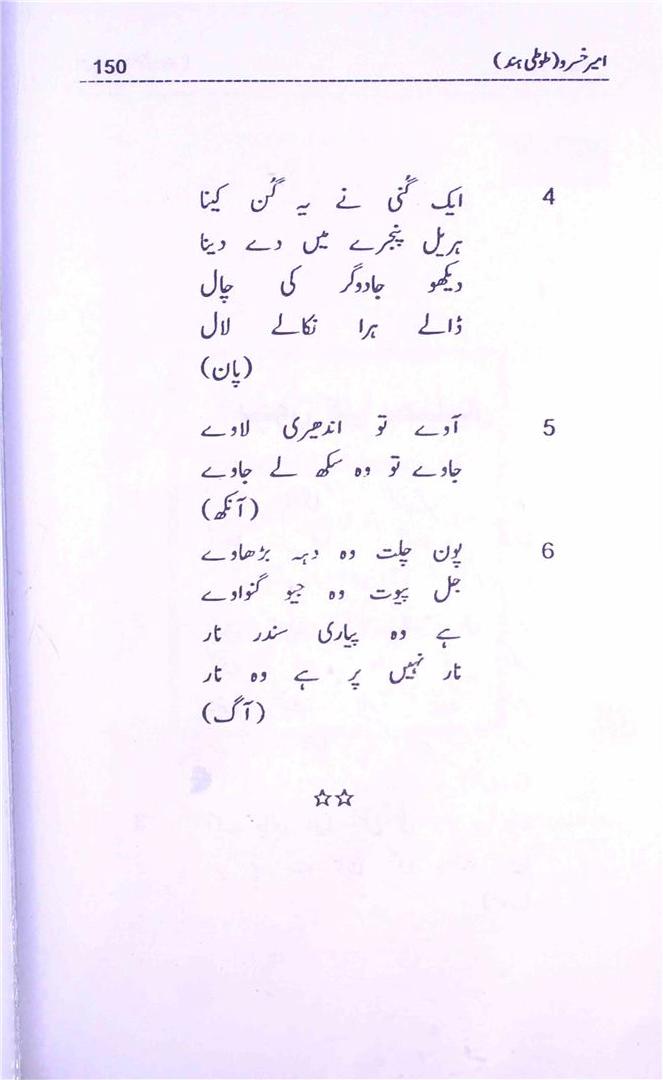 امیر خسرو (طوطی ہند) 150
4 ایک گُنی نے یہ گُن کینا
ہریل پنجرے میں دے دینا
دیکھو جادوگر کی چال
ڈالے ہرا نکالے لال
(پان)
5 آوے تو اندھیری لاوے
جاوے تو وہ سکھ لے جاوے
(آنکھ)
6 پون چلت وہ دہہ بڑھاوے
جل پیوت وہ جیو گنواوے
ہے وہ پیاری سندر نار
نار نہیں پر ہے وہ نار
(آگ)
☆☆